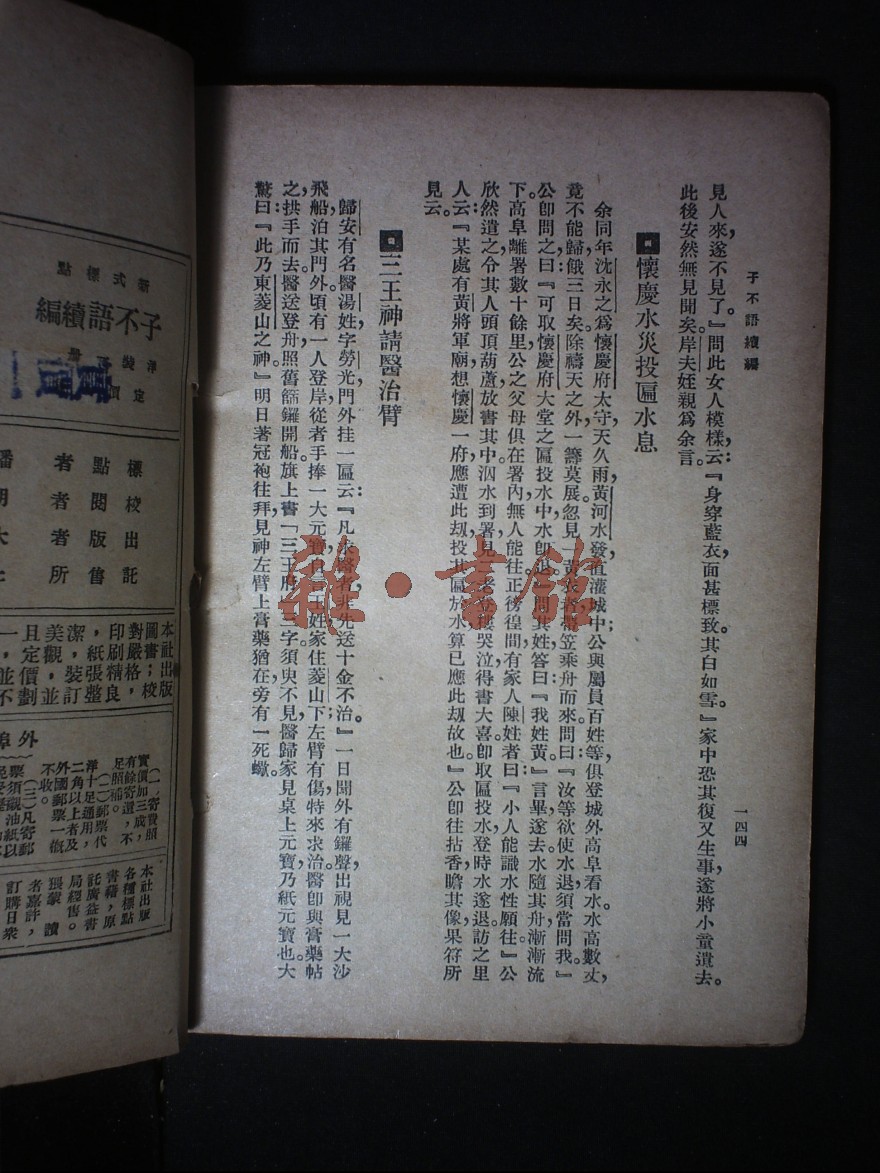 子不語續編
一四四
見人來遂不見了。』問此女人模樣,云:『身穿藍衣,面甚標致。其白如雪。』家中恐其復又生事,遂將小童遣去。
此後安然無見聞矣。岸夫姪親爲余言。
懷慶水災投匾水息
余同年沈永之爲懷慶府太守,天久雨,黃河水發,直灌城中;公與屬員百姓等,俱登城外高阜看水。水高數丈,
竟不能歸,餓三日矣。除禱天之外,一籌莫展。忽見一黃衣者戴笠乘舟而來,問曰:『汝等欲使水退,須當問我。』
公卽問之曰:『可取懷慶府大堂之匾投水中,水卽退。』問其姓,答曰:『我姓黃。』言畢遂去,水隨其舟漸漸流
下。高阜離署數十餘里,公之父母俱在署內,無人能往。正徬徨間,有家人陳姓者曰:『小人能識水性,願往。』公
欣然遣之,令其人頭頂葫蘆,放書其中,泅水到署。見二老登樓哭泣,得書大喜。卽取匾投水,登時水遂退。訪之里
人云:『某處有黃將軍廟,想懷慶一府,應遭此刼,投其匾於水,算已應此刼故也。』公卽往拈香,瞻其像,果符所
見云。
三王神請醫治臂
歸安有名醫湯姓,字勞光,門外挂一匾云:『凡求醫者,非先送十金不治。』一日聞外有鑼聲,出視,見一大沙
飛船泊其門外,頃有一人登岸,從者手捧一大元寶,自言王姓,家住菱山下,左臂有傷,特來求治。醫卽與膏藥帖
之,拱手而去。醫送登舟,照舊篩鑼開船,旗上書「三王府」三字,須臾不見。醫歸家見桌上元寶,乃紙元寶也。大
驚曰:『此乃東菱山之神。』明日著冠袍往拜,見神左臂上膏藥猶在,旁有一死蠍。
新式標點
子不語續編
洋裝
定價
標點者
校閱者
出版者
託售所
本社出版
圖書;校
對嚴格,
印刷精良
,紙張整
潔,裝訂
美觀,並
且定價劃
一,並不
外埠
(一)寄費照
實價加三成,
有餘寄還,不
足照補。
(二)郵票代
洋十足通用,
二角以上者及
外國郵票一概
不收。
(三)凡寄郵
票須襯油紙以
本社出版
各種標點
書籍,原
託廣益書
局經售。
猥蒙讀
者嘉許,
訂購日衆
雜·書館